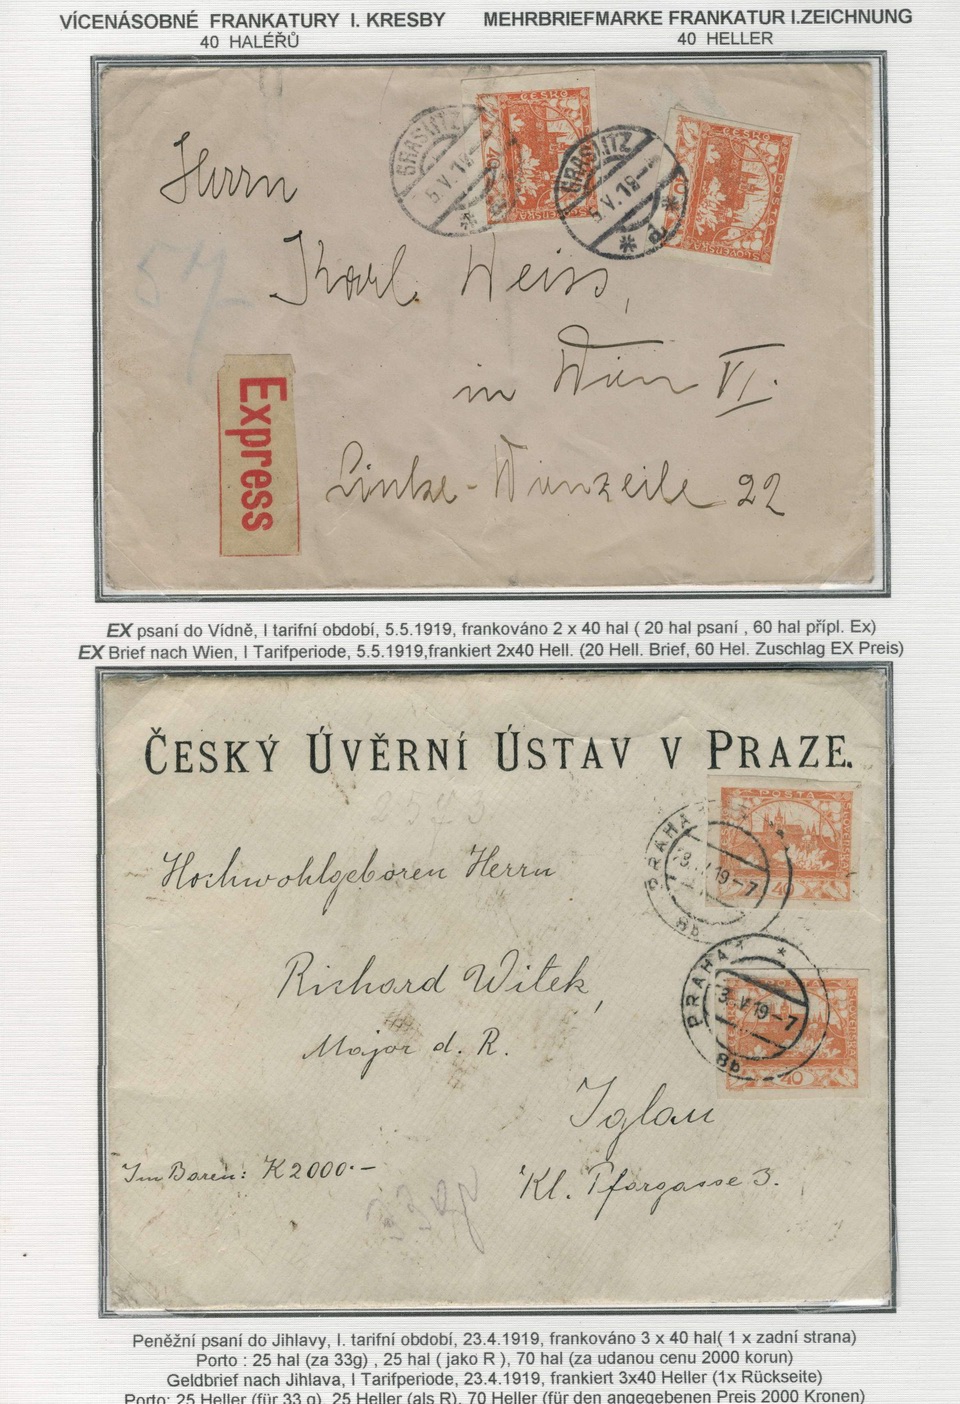 VÍCENÁSOBNÉ FRANKATURY I. KRESBY MEHRBRIEFMARKE FRANKATUR I.ZEICHNUNG
40 HALÉŘŮ 40 HELLER
ČESKO
POSTA
SLOVENSKÁ
40
GRASLITZ
5.V.19
Herrn
Karl Weiss,
in Wien VI.
Linke-Wienzeile 22
Express
EX psaní do Vídně, I tarifní období, 5.5.1919, frankováno 2 x 40 hal ( 20 hal psaní , 60 hal přípl. Ex)
EX Brief nach Wien, I Tarifperiode, 5.5.1919,frankiert 2x40 Hell. (20 Hell. Brief, 60 Hel. Zuschlag EX Preis)
ČESKÝ ÚVĚRNÍ ÚSTAV V PRAZE.
2543
POSTA
SLOVENSKÁ
40
PRAHA
19-7
8b
Hochwohlgeboren Herrn
Richard Witek,
PRAHA
3.V.19-7
8b
40
Major d. R.
Iglau
Im Baren: K2000·–
Kl. Pfargasse 3.
33g
Peněžní psaní do Jihlavy, I. tarifní období, 23.4.1919, frankováno 3 x 40 hal( 1 x zadní strana)
Porto : 25 hal (za 33g) , 25 hal ( jako R ), 70 hal (za udanou cenu 2000 korun)
Geldbrief nach Jihlava, I Tarifperiode, 23.4.1919, frankiert 3x40 Heller (1x Rückseite)
Porto: 25 Heller (für 33 g), 25 Heller (als R), 70 Heller (für den angegebenen Preis 2000 Kronen)